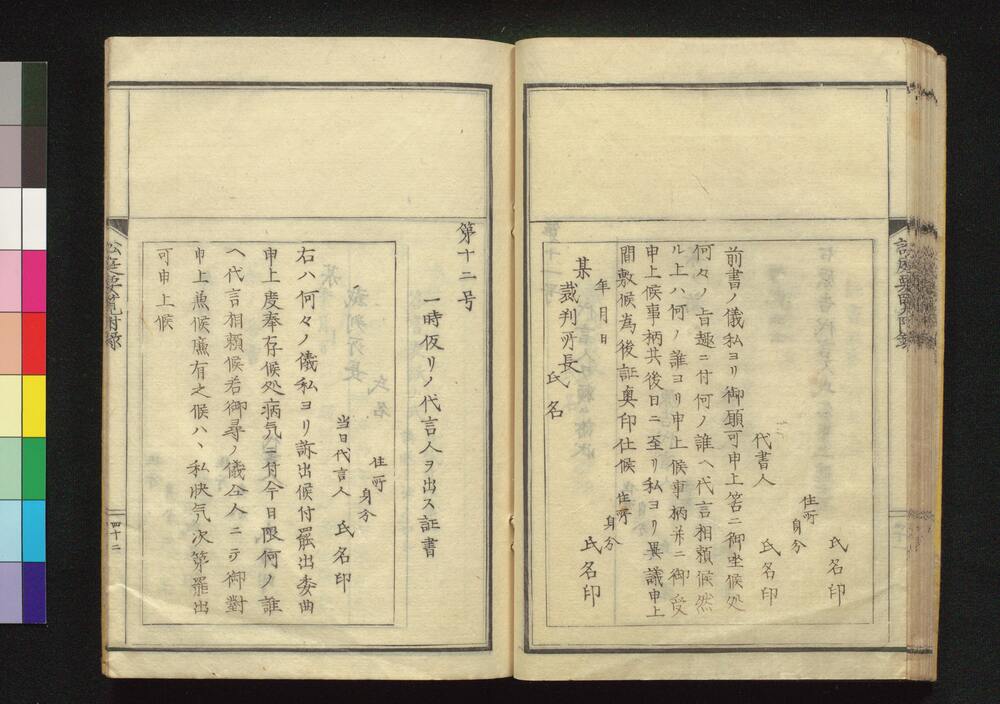 氏名印
住所
身分
氏名印
代書人
前書ノ儀私ヨリ御願可申上筈ニ御坐候処
何々ノ旨趣ニ付何ノ誰ヘ代言相頼候然
ル上ハ何ノ誰ヨリ申上候事柄并ニ御受
申上候事柄共後日ニ至リ私ヨリ異議申上
間敷候為後証奥印仕候
住所
身分
氏名印
年月日
某裁判所長
氏名
第十二号
一時仮リノ代言人ヲ出ス証書
住所
身分
当日代言人 氏名印
右ハ何々ノ儀私ヨリ訴出候付罷出委曲
申上度奉存候処病気ニ付今日限何ノ誰
ヘ代言相頼候若御尋ノ儀仝人ニテ御對
申上兼候廉有之候ハヽ私快気次第罷出
可申上候
四十二